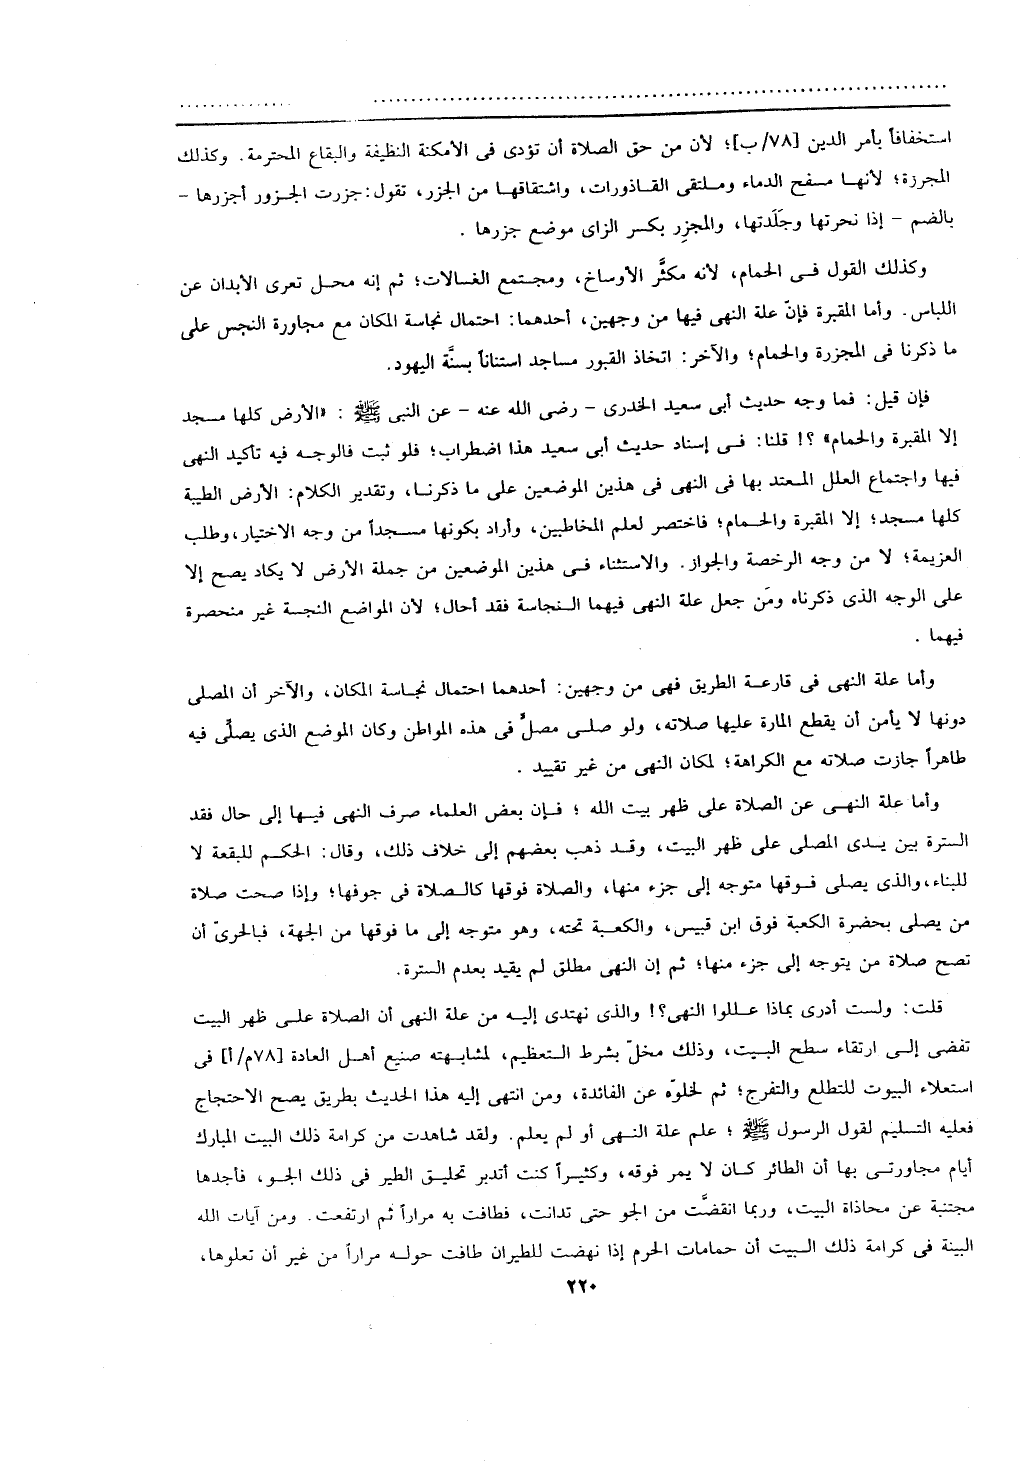 استخفافاً بأمر الدين [٧٨/ ب]؛ لأن من حق الصلاة أن تؤدى فى الأمكنة النظيفة والبقاع المحترمة. وكذلك
المجرزة؛ لأنها مسفح الدماء وملتقى القاذورات، واشتقاقها من الجزر، تقول: جزرت الجزور أجزرها -
بالضم - إذا نحرتها وجَلَدتها، والمجزِر بكسر الزاى موضع جزرها .
وكذلك القول فى الحمام، لأنه مكثَّر الأوساخ، ومجتمع الغسالات؛ ثم إنه محل تعرى الأبدان عن
اللباس. وأما المقبرة فإنّ علة النهى فيها من وجهين، أحدهما: احتمال نجاسة المكان مع مجاورة النجس على
ما ذكرنا فى المجزرة والحمام؛ والآخر: اتخاذ القبور مساجد استناناً بسنَّة اليهود.
فإن قيل: فما وجه حديث أبى سعيد الخدرى - رضى الله عنه - عن النبى ﷺ : «الأرض كلها مسجد
إلا المقبرة والحمام» ؟! قلنا: فى إسناد حديث أبى سعيد هذا اضطراب؛ فلو ثبت فالوجه فيه تأكيد النهى
فيها واجتماع العلل المعتد بها فى النهى فى هذين الموضعين على ما ذكرنا، وتقدير الكلام: الأرض الطيبة
كلها مسجد؛ إلا المقبرة والحمام؛ فاختصر لعلم المخاطبين، وأراد بكونها مسجداً من وجه الاختيار، وطلب
العزيمة؛ لا من وجه الرخصة والجواز. والاستثناء فى هذين الموضعين من جملة الأرض لا يكاد يصح إلا
على الوجه الذى ذكرناه ومَن جعل علة النهى فيهما النجاسة فقد أحال؛ لأن المواضع النجسة غير منحصرة
فيهما .
وأما علة النهى فى قارعة الطريق فهى من وجهين: أحدهما احتمال نجاسة المكان، والآخر أن المصلى
دونها لا يأمن أن يقطع المارة عليها صلاته، ولو صلى مصلٌّ فى هذه المواطن وكان الموضع الذى يصلِّى فيه
طاهراً جازت صلاته مع الكراهة؛ لمكان النهى من غير تقييد .
وأما علة النهى عن الصلاة على ظهر بيت الله ؛ فإن بعض العلماء صرف النهى فيها إلى حال فقد
السترة بين يدى المصلى على ظهر البيت، وقد ذهب بعضهم إلى خلاف ذلك، وقال: الحكم للبقعة لا
للبناء، والذى يصلى فوقها متوجه إلى جزء منها، والصلاة فوقها كالصلاة فى جوفها؛ وإذا صحت صلاة
من يصلى بحضرة الكعبة فوق ابن قبيس، والكعبة تحته، وهو متوجه إلى ما فوقها من الجهة، فبالحرىّ أن
تصح صلاة من يتوجه إلى جزء منها؛ ثم إن النهى مطلق لم يقيد بعدم السترة.
قلت: ولست أدرى بماذا عللوا النهى؟! والذى نهتدى إليه من علة النهى أن الصلاة على ظهر البيت
تفضى إلى ارتقاء سطح البيت، وذلك مخلّ بشرط التعظيم، لمشابهته صنيع أهل العادة [٧٨م/ أ] فى
استعلاء البيوت للتطلع والتفرج؛ ثم لخلوّه عن الفائدة، ومن انتهى إليه هذا الحديث بطريق يصح الاحتجاج
فعليه التسليم لقول الرسول ﷺ ؛ علم علة النهى أو لم يعلم. ولقد شاهدت من كرامة ذلك البيت المبارك
أيام مجاورتى بها أن الطائر كان لا يمر فوقه، وكثيراً كنت أتدبر تحليق الطير فى ذلك الجو، فأجدها
مجتنبة عن محاذاة البيت، وربما انقضَّت من الجو حتى تدانت، فطافت به مراراً ثم ارتفعت. ومن آيات الله
البينة فى كرامة ذلك البيت أن حمامات الحرم إذا نهضت للطيران طافت حوله مراراً من غير أن تعلوها،
٢٢٠